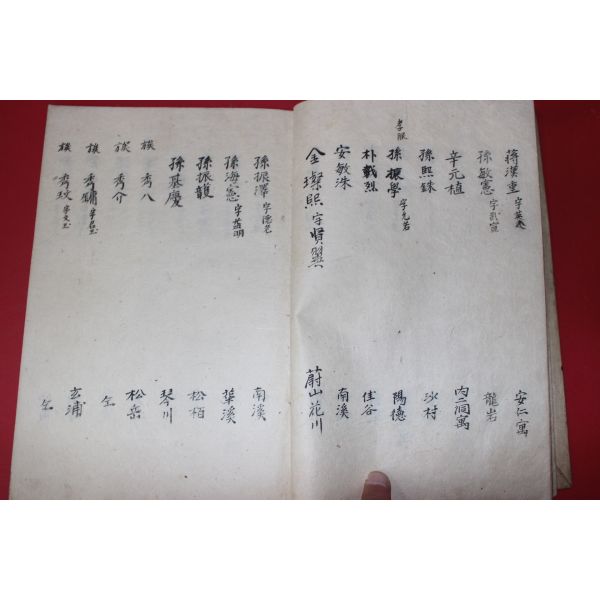 蔣漢重 字英 安仁寓
孫敏憲 字 龍岩
辛元植 內洞寓
孫熙銖 冰村
李服 孫振學 字允若 陽德
朴載烈 佳谷
安敏洙 南溪
金璨熙 字賢 蔚山花川
孫振澤 字德老 南溪
孫海憲 字益明 華溪
孫振馥 松栢
孫基慶 琴川
族 秀八 松岳
族 秀介 仝
族 秀鏞 字名玉 玄浦
族 秀玟 字文玉 仝